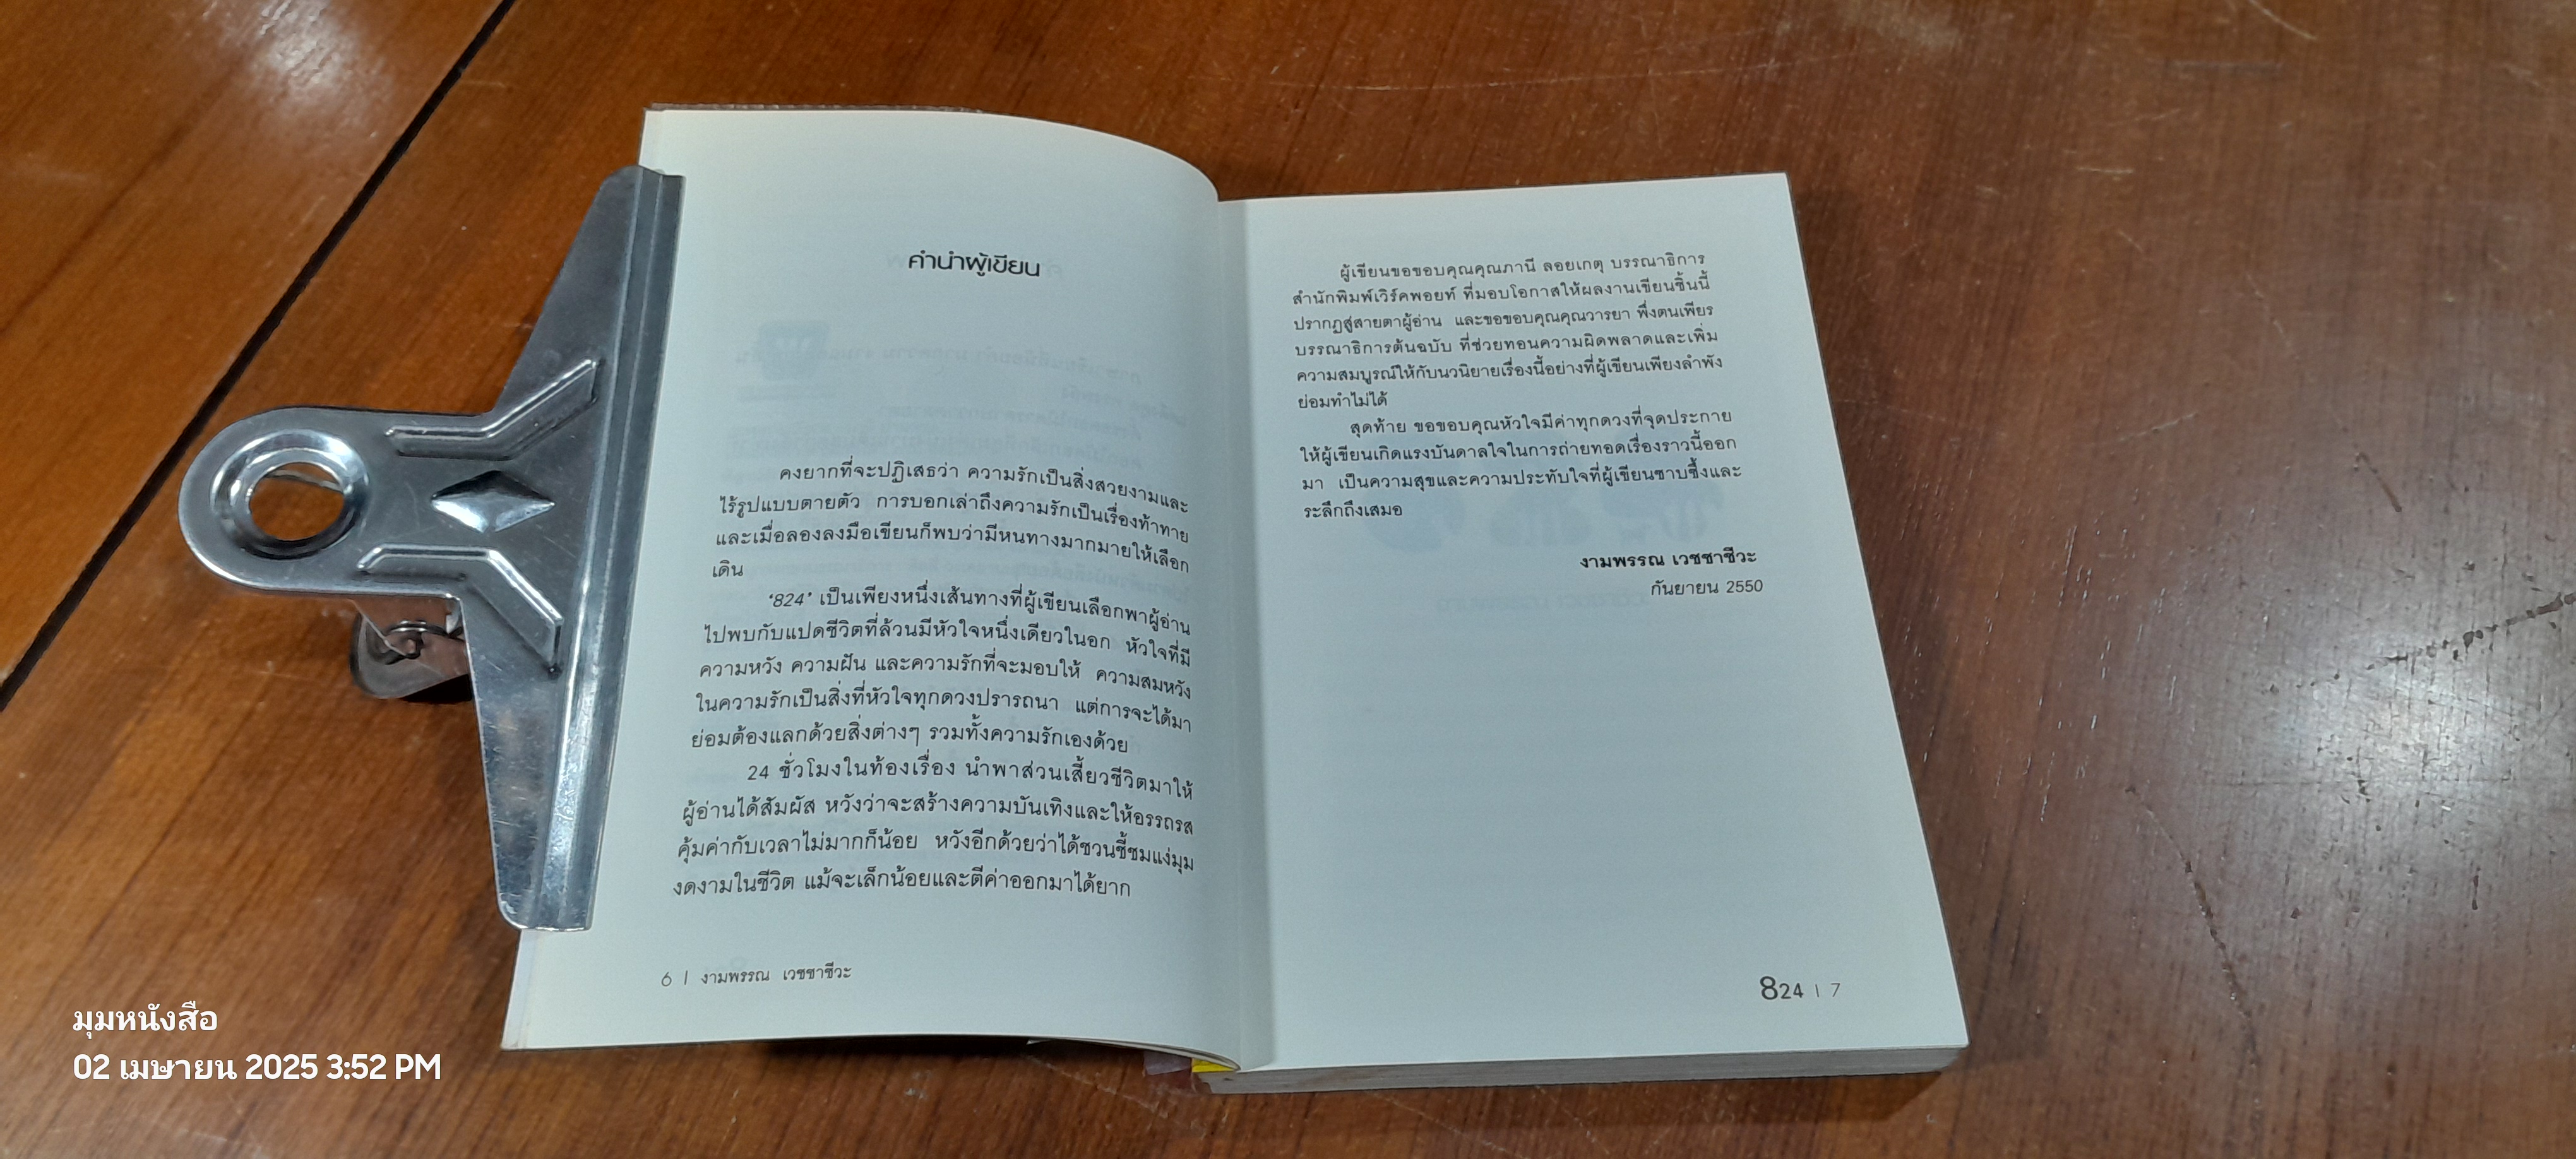 คำนำผู้เขียน
คงยากที่จะปฏิเสธว่า ความรักเป็นสิ่งสวยงามและ
ไร้รูปแบบตายตัว การบอกเล่าถึงความรักเป็นเรื่องท้าทาย
และเมื่อลองลงมือเขียนก็พบว่ามีหนทางมากมายให้เลือก
เดิน
'824' เป็นเพียงหนึ่งเส้นทางที่ผู้เขียนเลือกพาผู้อ่าน
ไปพบกับแปดชีวิตที่ล้วนมีหัวใจหนึ่งเดียวในอก หัวใจที่มี
ความหวัง ความฝัน และความรักที่จะมอบให้ ความสมหวัง
ในความรักเป็นสิ่งที่หัวใจทุกดวงปรารถนา แต่การจะได้มา
ย่อมต้องแลกด้วยสิ่งต่างๆ รวมทั้งความรักเองด้วย
24 ชั่วโมงในท้องเรื่อง นำพาส่วนเสี้ยวชีวิตมาให้
ผู้อ่านได้สัมผัส หวังว่าจะสร้างความบันเทิงและให้อรรถรส
คุ้มค่ากับเวลาไม่มากก็น้อย หวังอีกด้วยว่าได้ชวนชี้ชมแง่มุม
งดงามในชีวิต แม้จะเล็กน้อยและตีค่าออกมาได้ยาก
6 | งามพรรณ เวชชาชีวะ
ผู้เขียนขอขอบคุณคุณภานี ลอยเกตุ บรรณาธิการ
สำนักพิมพ์เวิร์คพอยท์ ที่มอบโอกาสให้ผลงานเขียนชิ้นนี้
ปรากฏสู่สายตาผู้อ่าน และขอขอบคุณคุณวารยา พึ่งตนเพียร
บรรณาธิการต้นฉบับ ที่ช่วยทอนความผิดพลาดและเพิ่ม
ความสมบูรณ์ให้กับนวนิยายเรื่องนี้อย่างที่ผู้เขียนเพียงลำพัง
ย่อมทำไม่ได้
สุดท้าย ขอขอบคุณหัวใจมีค่าทุกดวงที่จุดประกาย
ให้ผู้เขียนเกิดแรงบันดาลใจในการถ่ายทอดเรื่องราวนี้ออก
มา เป็นความสุขและความประทับใจที่ผู้เขียนซาบซึ้งและ
ระลึกถึงเสมอ
งามพรรณ เวชชาชีวะ
กันยายน 2550
824 | 7
มุมหนังสือ
02 เมษายน 2025 3:52 PM